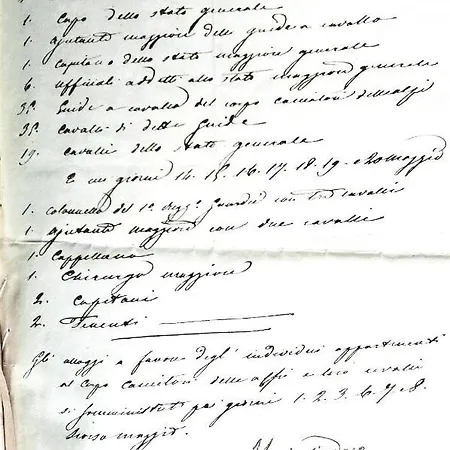 1. Capo dello stato generale
1. Ajutante maggiore delle guide a cavallo
1. Capitano dello stato maggiore generale
6. Uffiziali addetti allo stato maggiore generale
35. Guide a cavallo del corpo cacciatori delle alpi
35. Cavalli di dette Guide
19. Cavalli dello stato generale
E nei giorni 14. 15. 16. 17. 18. 19. e 20 maggio
1. Colonnello del 1º Regg.º Guardie con tre cavalli
1. Ajutante maggiore con due cavalli
1. Cappellano
1. Chirurgo maggiore
2. Capitani
2. Tenenti
Gli alloggi a favore degl' individui appartenenti
al Corpo Cacciatori delle alpi e loro cavalli
si somministrò pei giorni 1. 2. 3. 6. 7. e 8.
scorso maggio.